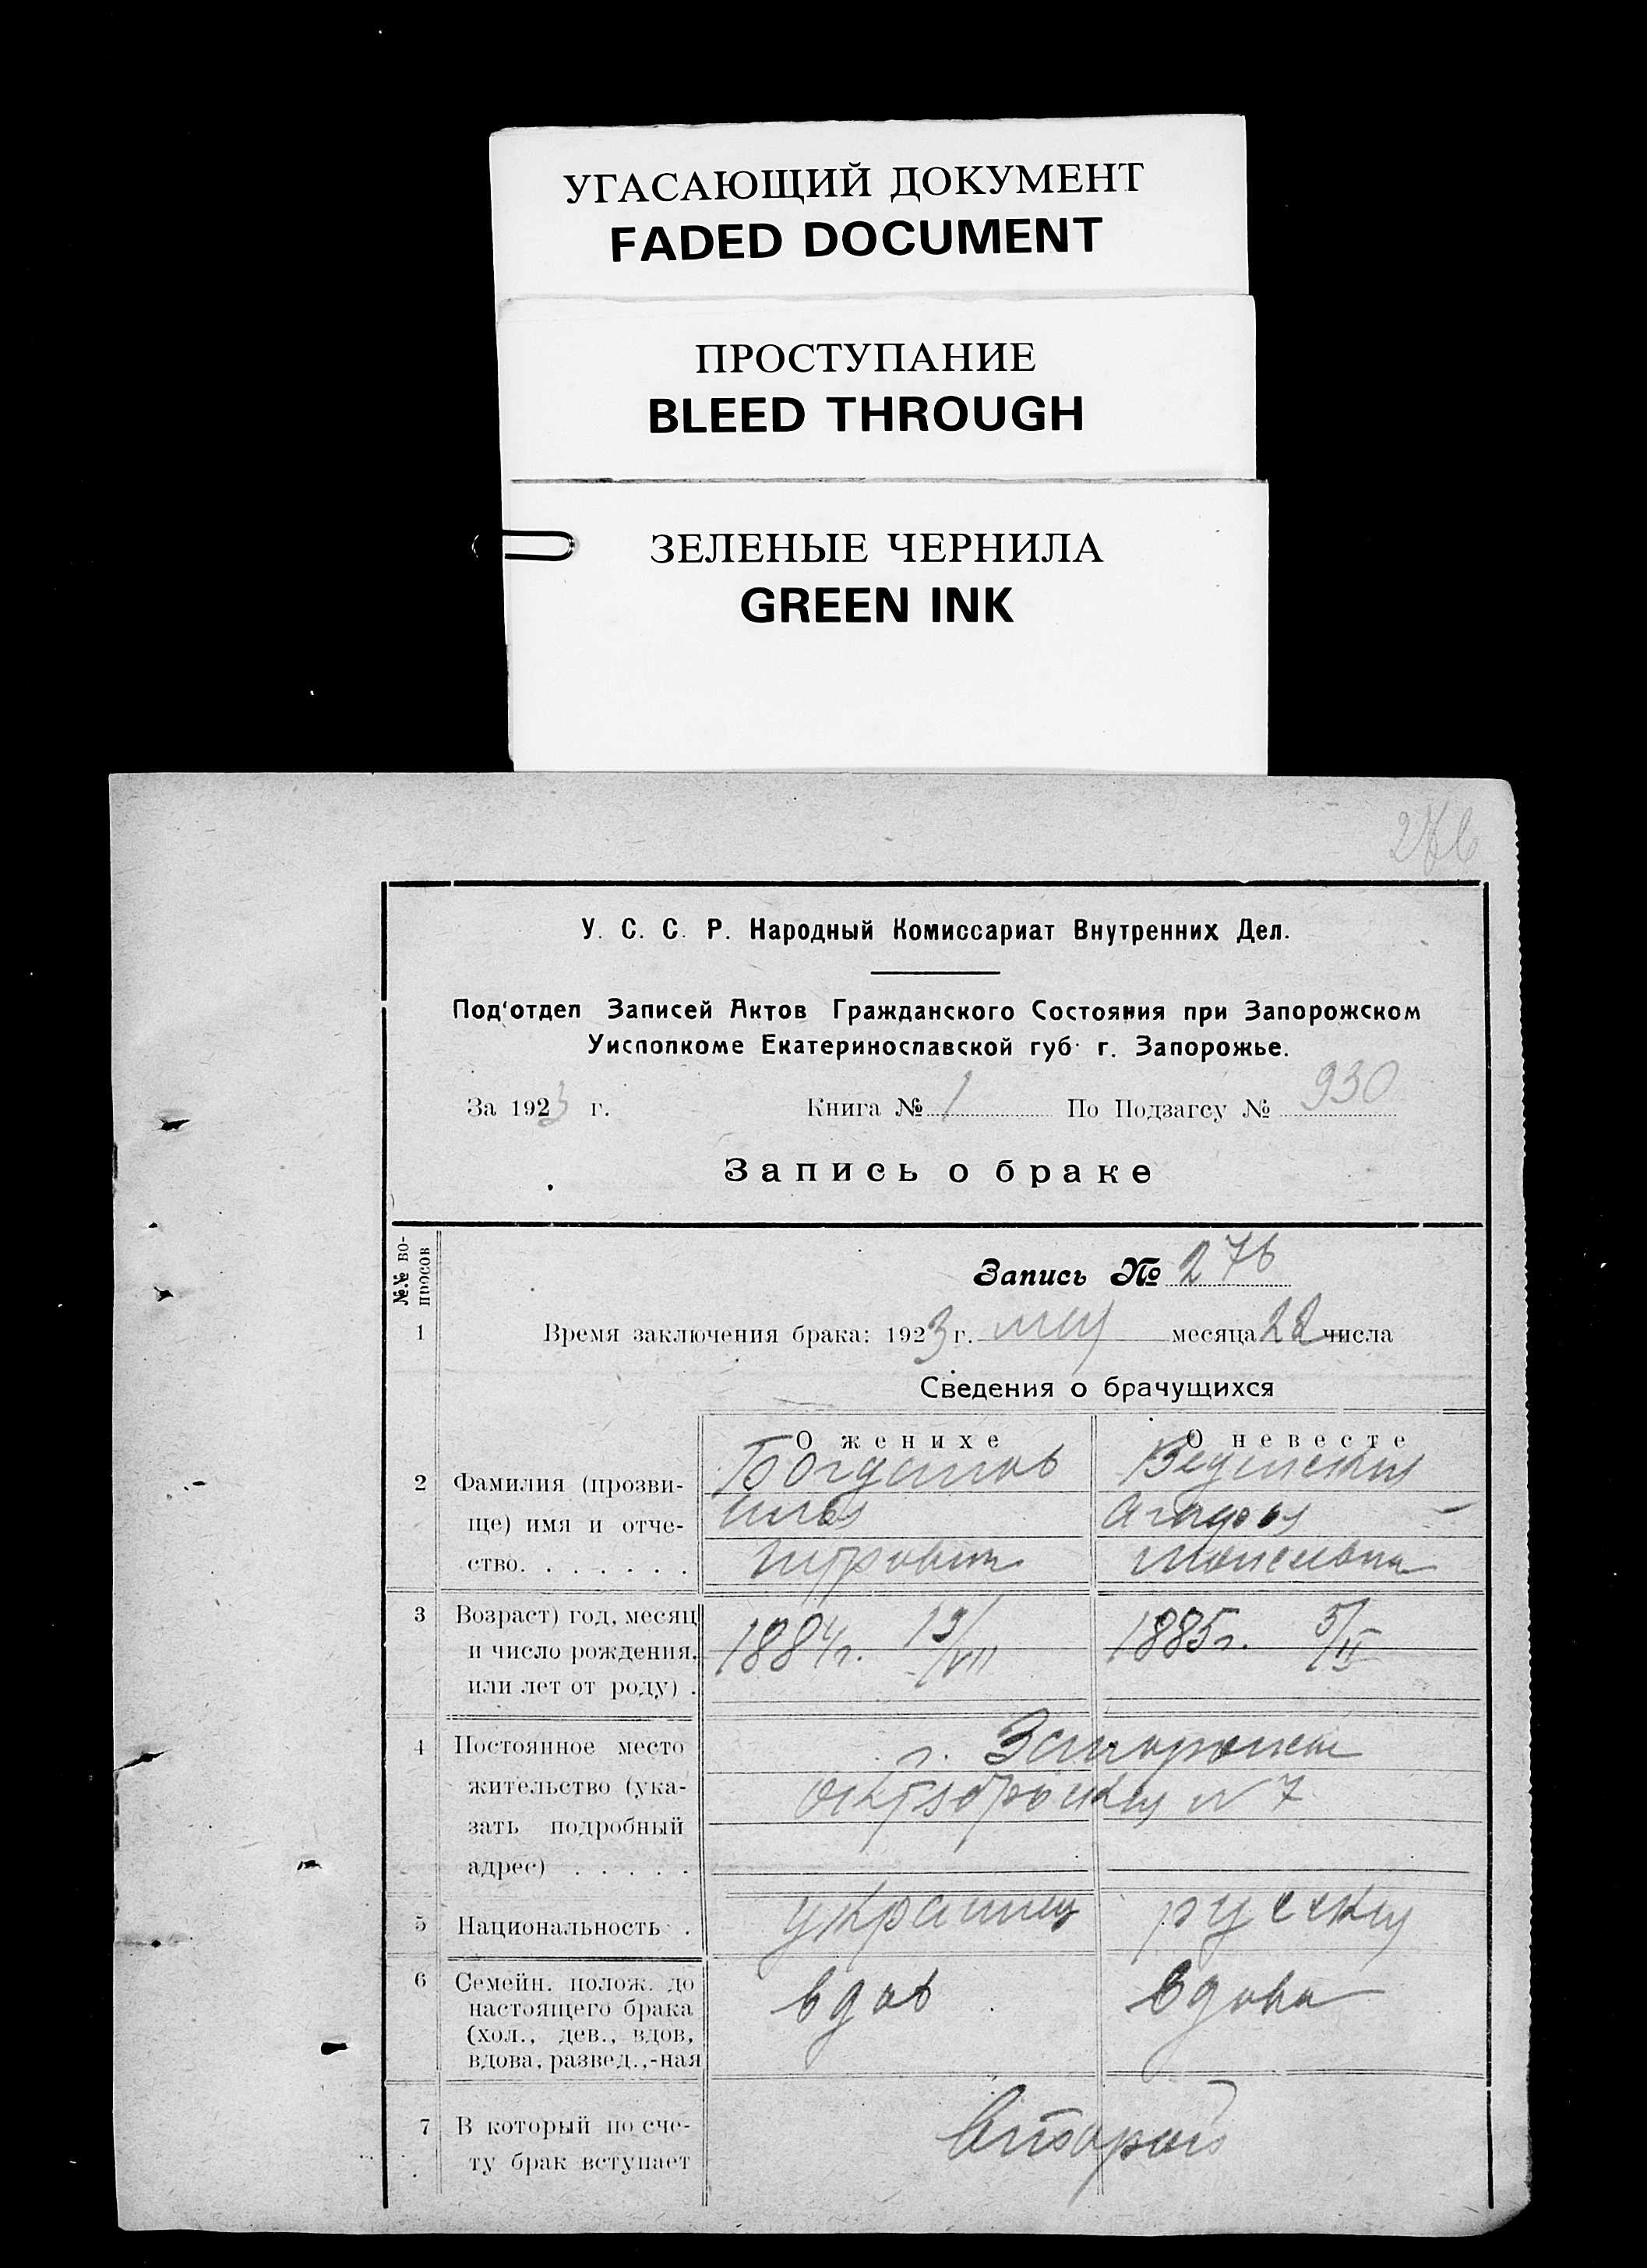 УГАСАЮЩИЙ ДОКУМЕНТ
FADED DOCUMENT
ПРОСТУПАНИЕ
BLEED THROUGH
ЗЕЛЕНЫЕ ЧЕРНИЛА
GREEN INK
276
У. С. С. Р. Народный Комиссариат Внутренних Дел.
Под'отдел Записей Актов Гражданского Состояния при Запорожском
Уисполкоме Екатеринославской губ. г. Запорожье.
За 1923 г. Книга № 1 По Подзагсу № 930
Запись о браке
№.№ во-
просов
Запись № 276
1 Время заключения брака: 1923 г. мая месяца 22 числа
Сведения о брачущихся
О женихе О невесте
2 Фамилия (прозви- Богданов
ще) имя и отче- Илья
ство. . . . . . . Петрович Моисеевна
3 Возраст) год, месяц
и число рождения, 1884г. 19/VII 1885г. 5/II
или лет от роду) .
4 Постоянное место г. Запорожье
жительство (ука-
зать подробный
адрес) . . . . .
5 Национальность . украинец русская
6 Семейн. полож. до
настоящего брака вдов вдова
(хол., дев., вдов,
вдова, развед.,-ная
7 В который по сче- второй
ту брак вступает